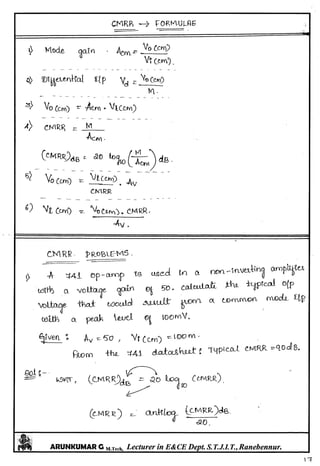 CMRR → FORMULAE
1) Mode gain - Acm = Vo (cm) / Vi (cm).
2) Differential I/p Vd = Vo (cm) / M.
3) Vo (cm) = Acm . Vi(cm)
4) CMRR = M / Acm.
(CMRR)dB = 20 log10 (M / Acm) dB.
5) Vo (cm) = Vi(cm) / CMRR . Av
6) Vi (cm) = Vo(cm). CMRR. / Av.
CMRR - PROBLEMS.
1) A 741 op-amp is used in a non-inverting amplifier
with a voltage gain of 50. calculate the typical o/p
voltage that would result from a common mode I/p
with a peak level of 100mV.
Given : Av = 50 , Vi (cm) = 100m.
From the 741 datasheet : Typical CMRR = 90dB.
Sol :- WKT, (CMRR)dB = 20 log10 (CMRR).
(CMRR) = antilog (CMRR)dB / 20.
ARUNKUMAR G M.Tech, Lecturer in E&CE Dept. S.T.J.I.T., Ranebennur.